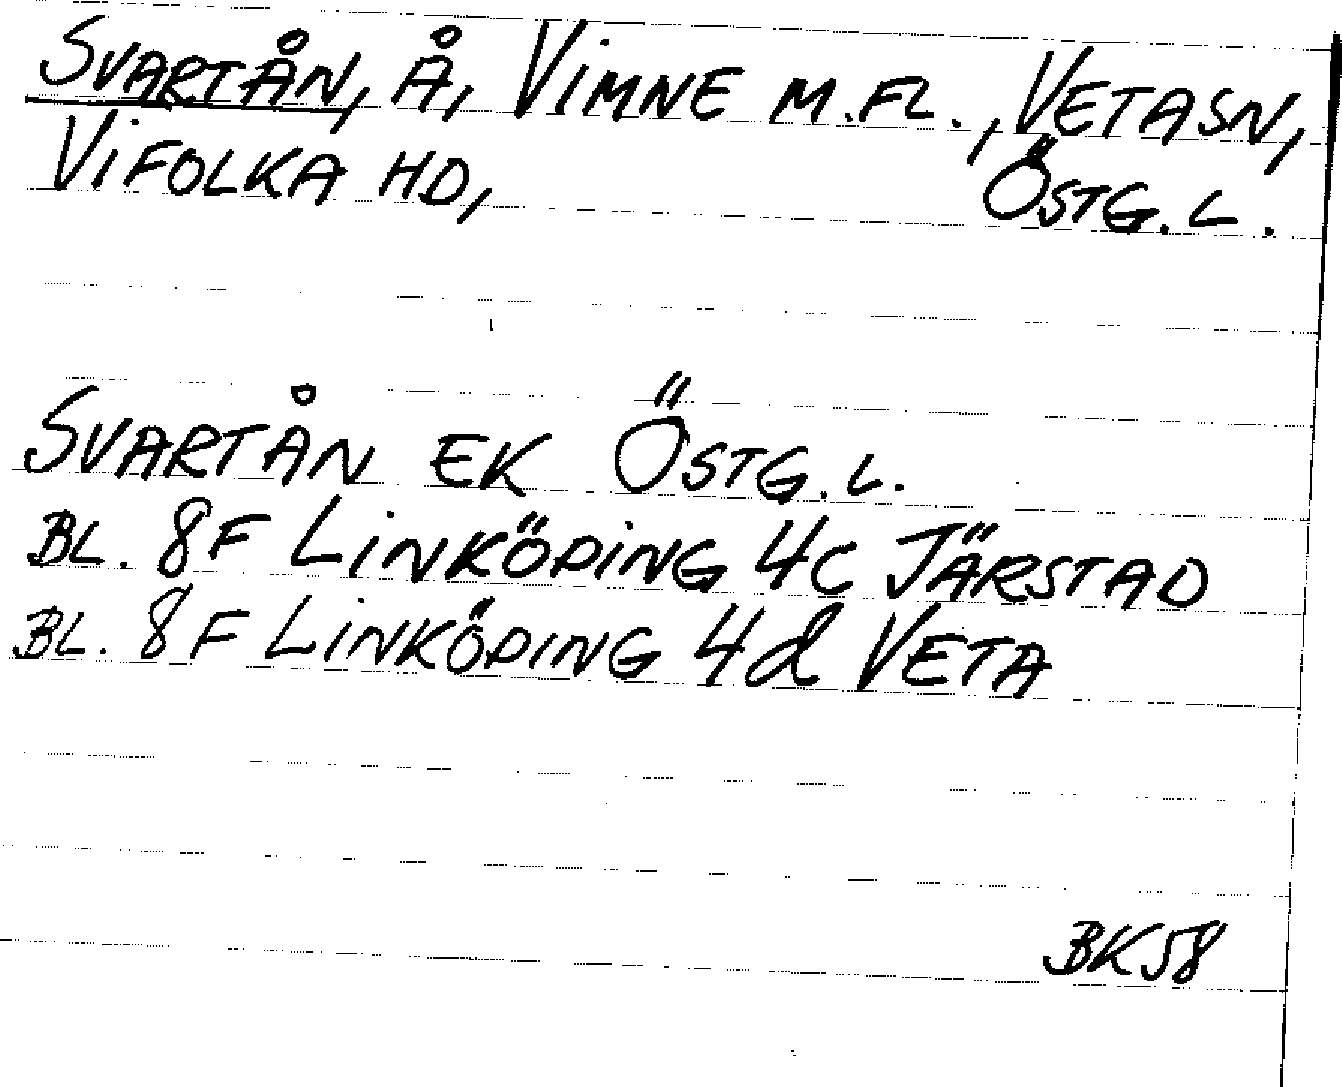 SVARTÅN, Å, VIMNE M.FL., VETASN,
VIFOLKA HD, ÖSTG.L.
SVARTÅN EK ÖSTG.L.
BL. 8F LINKÖPING 4C JÄRSTAD
BL. 8F LINKÖPING 4d VETA
BK58